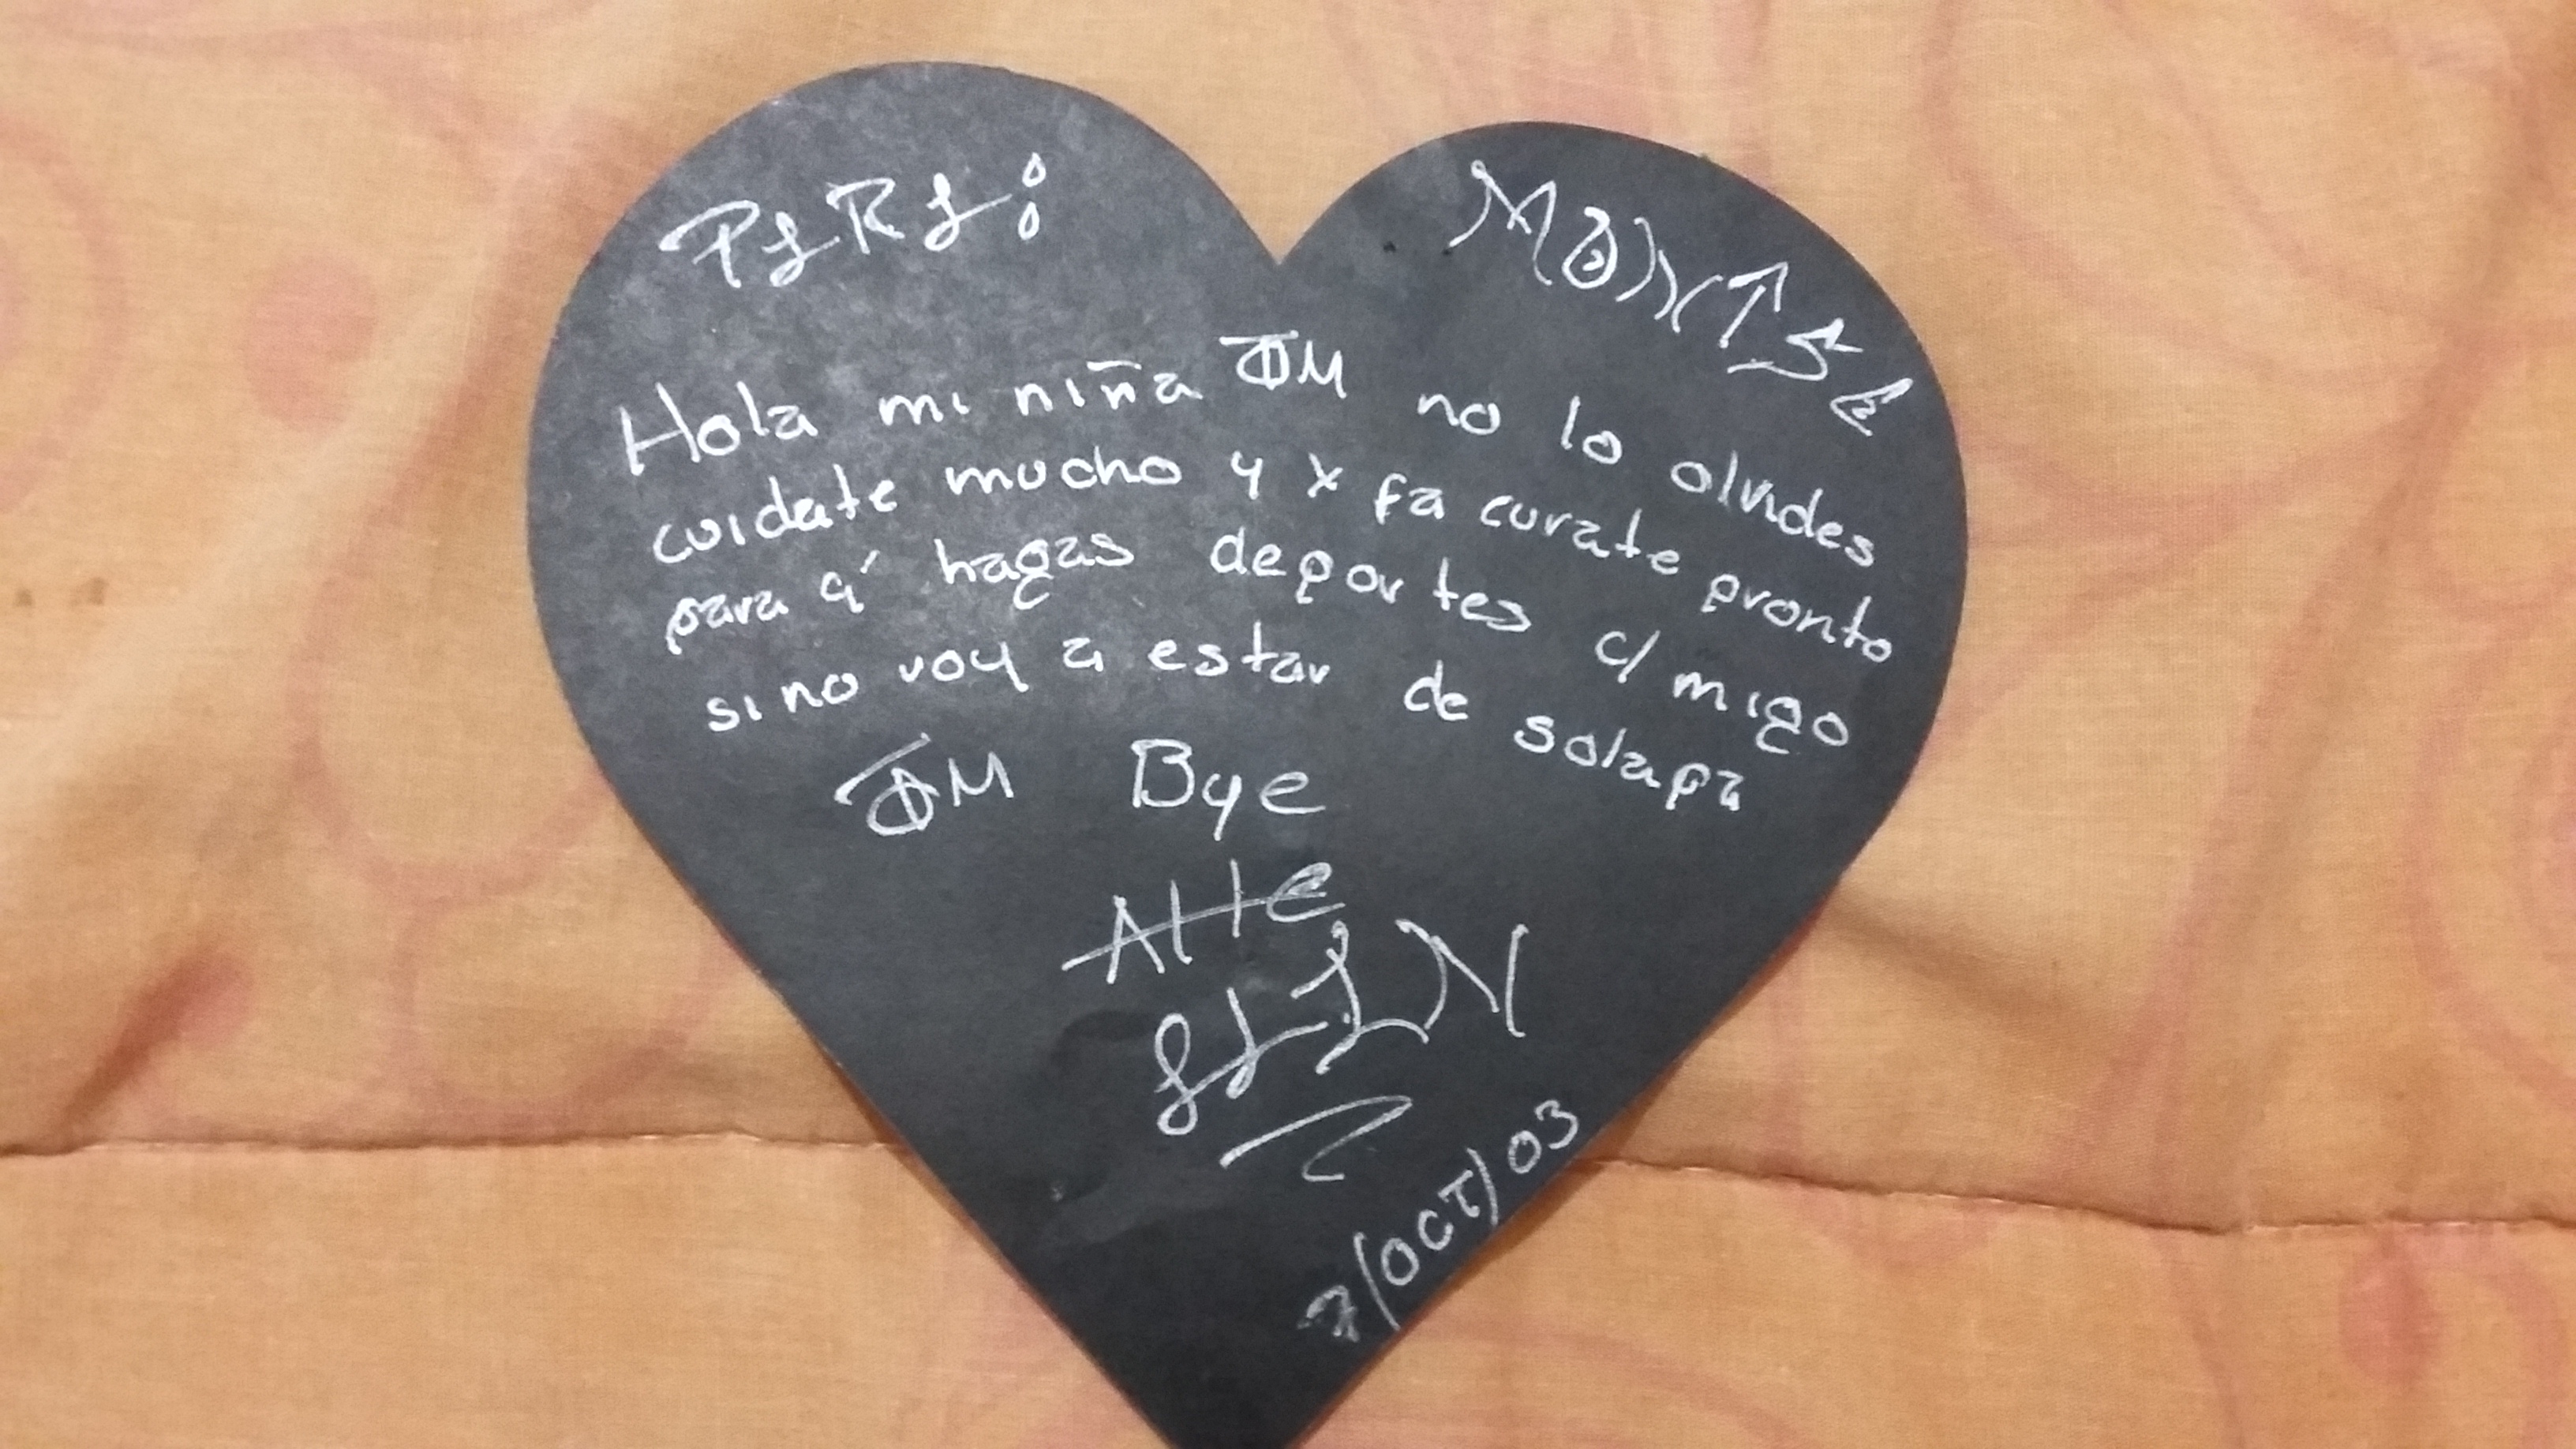 PARA:
MONTSE
Hola mi niña TQM no lo olvides
cuidate mucho y x fa curate pronto
para q' hagas deportes c/migo
sino voy a estar de solapa
TQM Bye
Atte
7/OCT/03